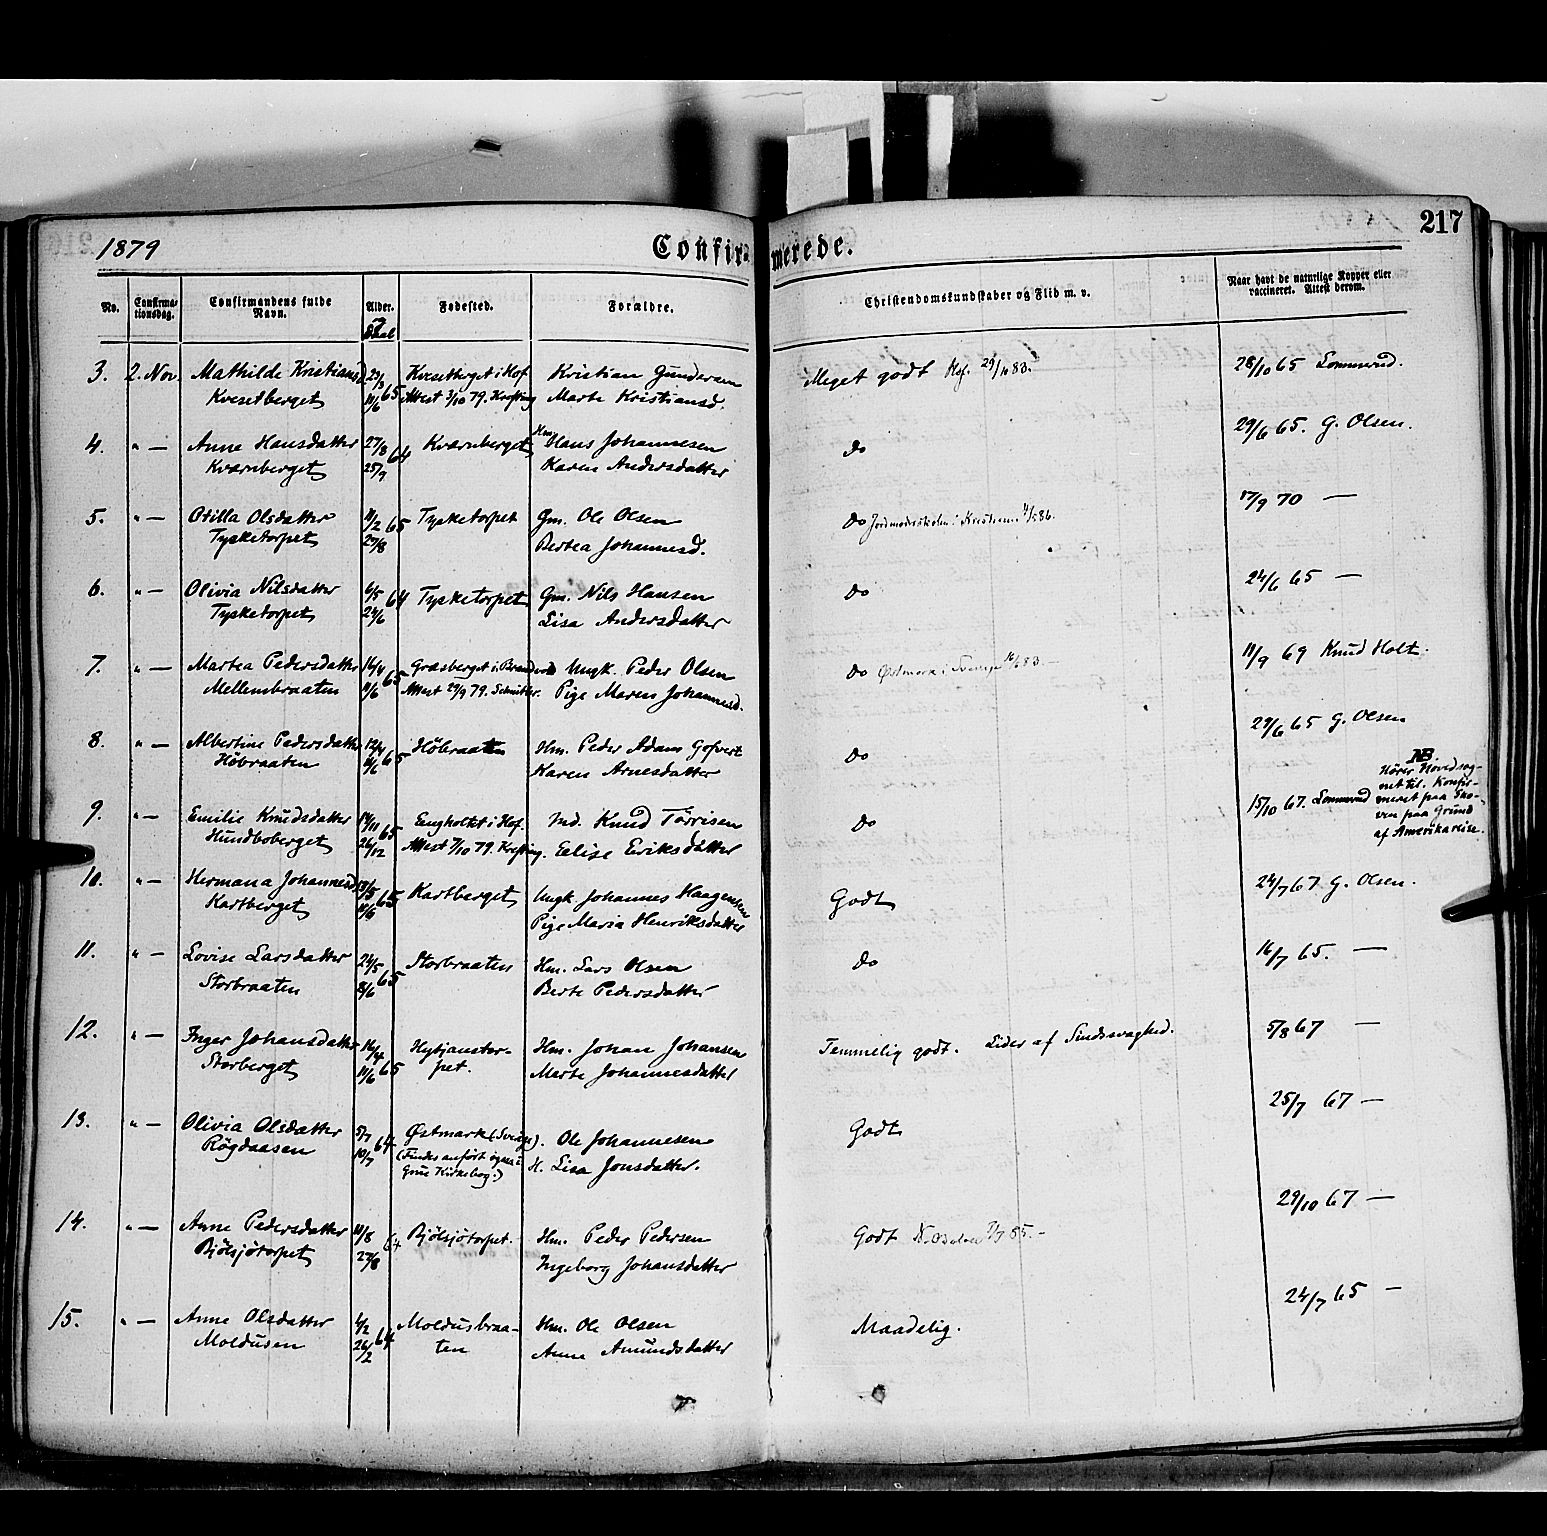 217
1879 Confirmerede.
No. Confirmationsdag. Confirmandens fulde Navn. Alder. Fødested. Forældre. Christendomskundskaber og Flid m. v. Naar havt de naturlige Kopper eller vaccineret. Attest derom.
3. 2. Nov. Mathilde Kristiansd. 65 Kvesetberget i Hof Kristian Gundersen Meget godt Hof. 28/10 65 Lommerud.
Kvesetberget 11/6 Attest 3/10 79. Krefting Marte Kristiansd.
4. " — Anne Hansdatter 27/8 64 Kværnberget Hm. Hans Johannesen do 29/6 65. G. Olsen.
Kværnberget 25/9 Karen Andersdatter
5. " — Otilla Olsdatter 11/2 65 Tysketorpet Gm. Ole Olsen do 17/9 70 —
Tysketorpet 27/8 Bertea Johannesd.
6. " — Olivia Nilsdatter 6/5 64 Tysketorpet Gm. Nils Hansen do 24/6 65 —
Tysketorpet 24/6 Lisa Andersdatter
7. " — Martea Pedersdatter 16/4 65 Græsberget i Brandval Ungk. Peder Olsen do Østmark i Sverige 11/9 69 Knud Holt.
Mellembraaten 11/6 Attest 29/9 79. Pige Maren Johannesd.
8. " — Albertine Pedersdatter 12/4 65 Høbraaten Hm. Peder Adam Gofvert do 29/6 65 G. Olsen
Høbraaten 11/6 Karen Arnesdatter
9. " — Emilie Knudsdatter 14/11 65 Engholtet i Hof. Ind. Knud Tørrisen do 15/10 67. Lommerud
Hundboberget 26/12 Attest 7/10 79. Krefting. Eelise Eriksdatter
NB
Hører Hovedsog-
net til. Konfir-
meret paa Sko-
ven paa Grund
af Amerikareise.
10. " — Hermana Johannesd. 13/5 65 Kartberget Ungk Johannes Haagensen Godt 24/7 67 G. Olsen.
Kartberget 11/6 Pige Maria Henriksdatter
11. " — Lovise Larsdatter 24/5 65 Storbraaten Hm. Lars Olsen do 16/7 65. —
Storbraaten 8/6 Berte Pedersdatter
12. " — Inger Johansdatter 16/4 65 Hytjanstor- Hm. Johan Johansen Temmelig godt. Lider af Sindssvaghed. 5/8 67 —
Storberget 11/6 pet. Marte Johannesdatter
13. " — Olivia Olsdatter 5/7 64 Østmark (Sverige). Ole Johannesen Godt 25/7 67 —
Rögdaasen 10/7 (Findes anført ogsaa i H. Lisa Jonsdatter.
Grue Kirkebog.)
14. " — Anne Pedersdatter 11/8 64 Bjølsjøtorpet. Hm. Peder Pedersen Godt 29/10 67 —
Bjølsjøtorpet 27/8 Ingeborg Johansdatter
15. " — Anne Olsdatter 4/2 64 Moldusbraa- Hm. Ole Olsen Maadelig. 24/7 65 —
Moldusen 26/2 ten Anne Amundsdatter